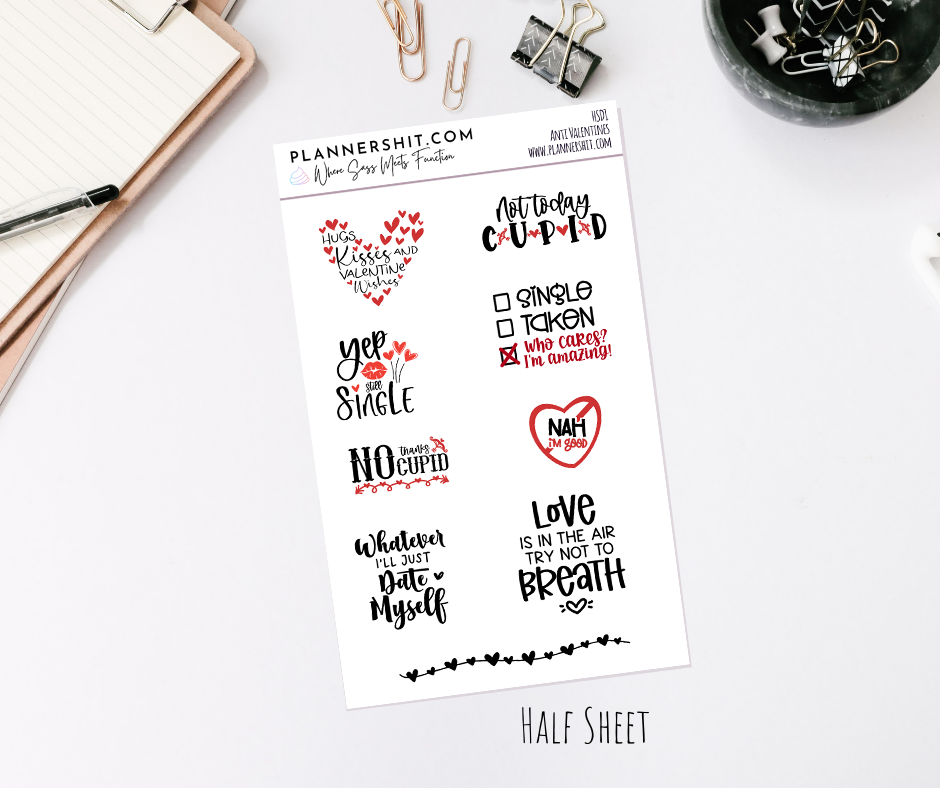 PLANNERSHIT.COM
Where Sass Meets Function
HSD1
ANTI VALENTINES
WWW.PLANNERSHIT.COM
HUGS
Kisses AND
VALENTINE
Wishes
Not today
CUPID
SINGLE
TAKEN
WHO CARES?
I'M AMAZING!
yep
still
SINGLE
NAH
I'M GOOD
NO thanks
CUPID
Whatever
I'LL JUST
Date
Myself
LOVE
IS IN THE AIR
TRY NOT TO
BREATH
HALF SHEET